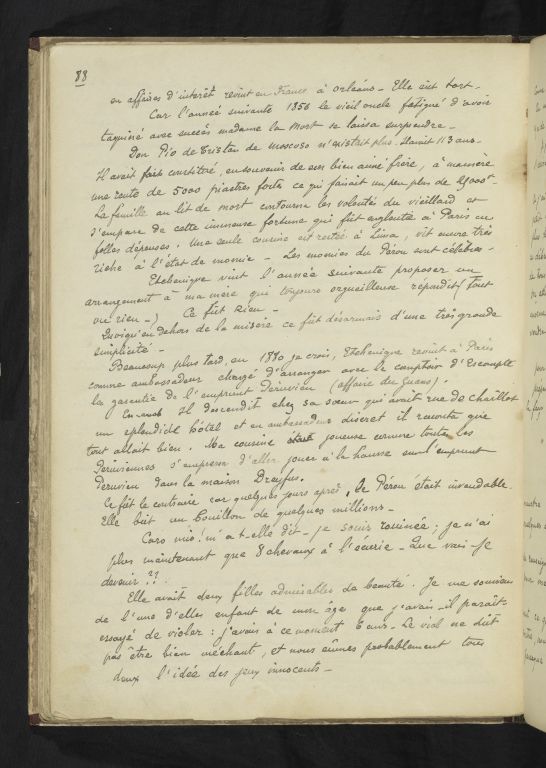 88
en affaires d'interêt revint en France à Orléans - Elle eut tort -
Car l'année suivante 1856 le vieil oncle fatigué d'avoir
taquiné avec succès madame la Mort se laissa surprendre -
Don Pio de Tristan de Moscoso n'existait plus. Il avait 113 ans -
Il avait fait constitué, en souvenir de son bien aimé frère, à ma mère
une rente de 5000 piastres fortes ce qui faisait un peu plus de 25000f.
La famille au lit de mort contourna les volontés du vieillard et
s'empara de cette immense fortune qui fut engloutie à Paris en
folles dépenses. Une seule cousine est restée à Lima, vit encore très
riche à l'état de momie - Les momies du Pérou sont célèbres -
Etchenique vint l'année suivante proposer un
arrangement à ma mère qui toujours orgueilleuse répondit (Tout
ou rien -) Ce fut Rien -
Quoiqu'en dehors de la misère ce fut désormais d'une très grande
simplicité -
Beaucoup plus tard, en 1880 je crois, Etchenique revint à Paris
comme ambassadeur chargé d'arranger avec le comptoir d'Escompte
la garantie de l'emprunt Péruvien (affaire du Guano).
Il descendit chez sa sœur qui avait rue de Chaillot
un splendide hôtel et en ambassadeur discret il raconta que
tout allait bien. Ma cousine joueuse comme toutes les
Péruviennes s'empressa d'aller jouer à la hausse sur l'emprunt
Péruvien dans la maison Dreyfus.
Ce fut le contraire car quelques jours après, le Pérou était invendable.
Elle but un bouillon de quelques millions -
Caro mio! m'a-t-elle dit - je suis ruinée; je n'ai
plus maintenant que 8 chevaux à l'écurie - Que vais-je
devenir??
Elle avait deux filles admirables de beauté. Je me souviens
de l'une d'elles enfant de mon âge que j'avais - il paraît -
essayé de violer: j'avais à ce moment 6 ans - Le viol ne dut
pas être bien méchant, et nous eûmes probablement tous
deux l'idée des jeux innocents -